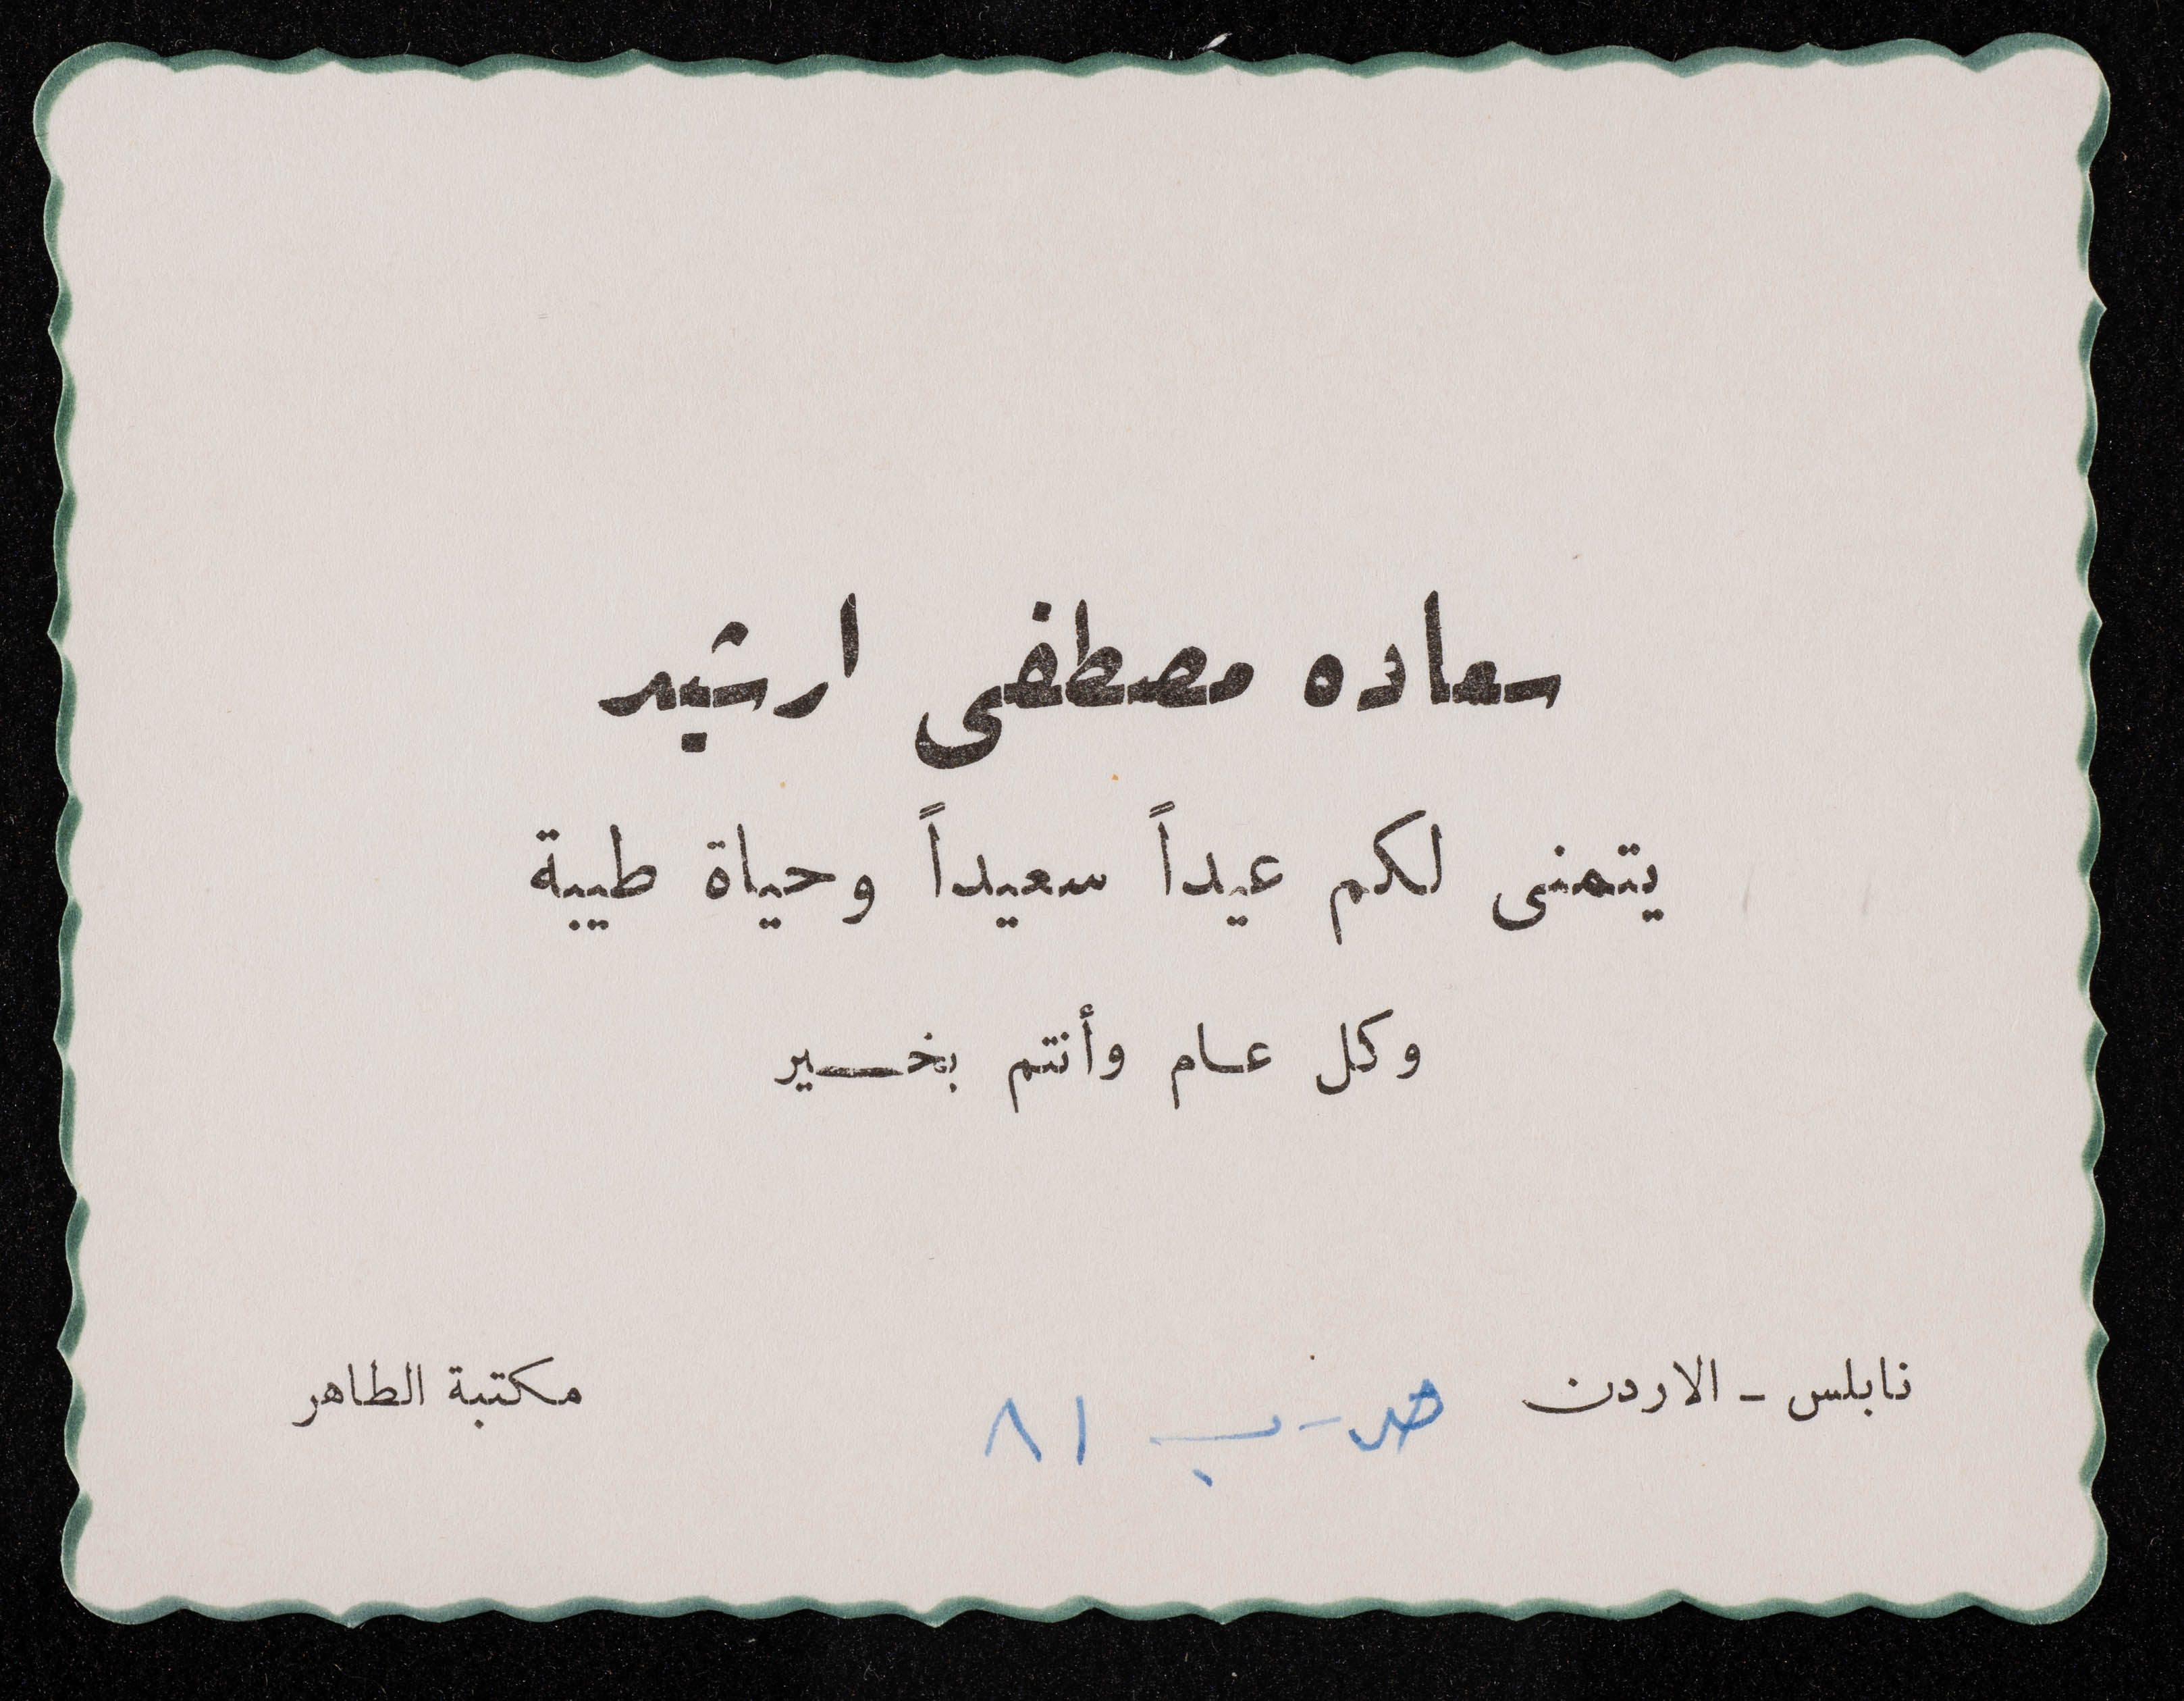 سعاده مصطفى ارشيد
يتمنى لكم عيداً سعيداً وحياة طيبة
وكل عام وأنتم بخير
نابلس - الاردن ص - ب ٨١ مكتبة الطاهر